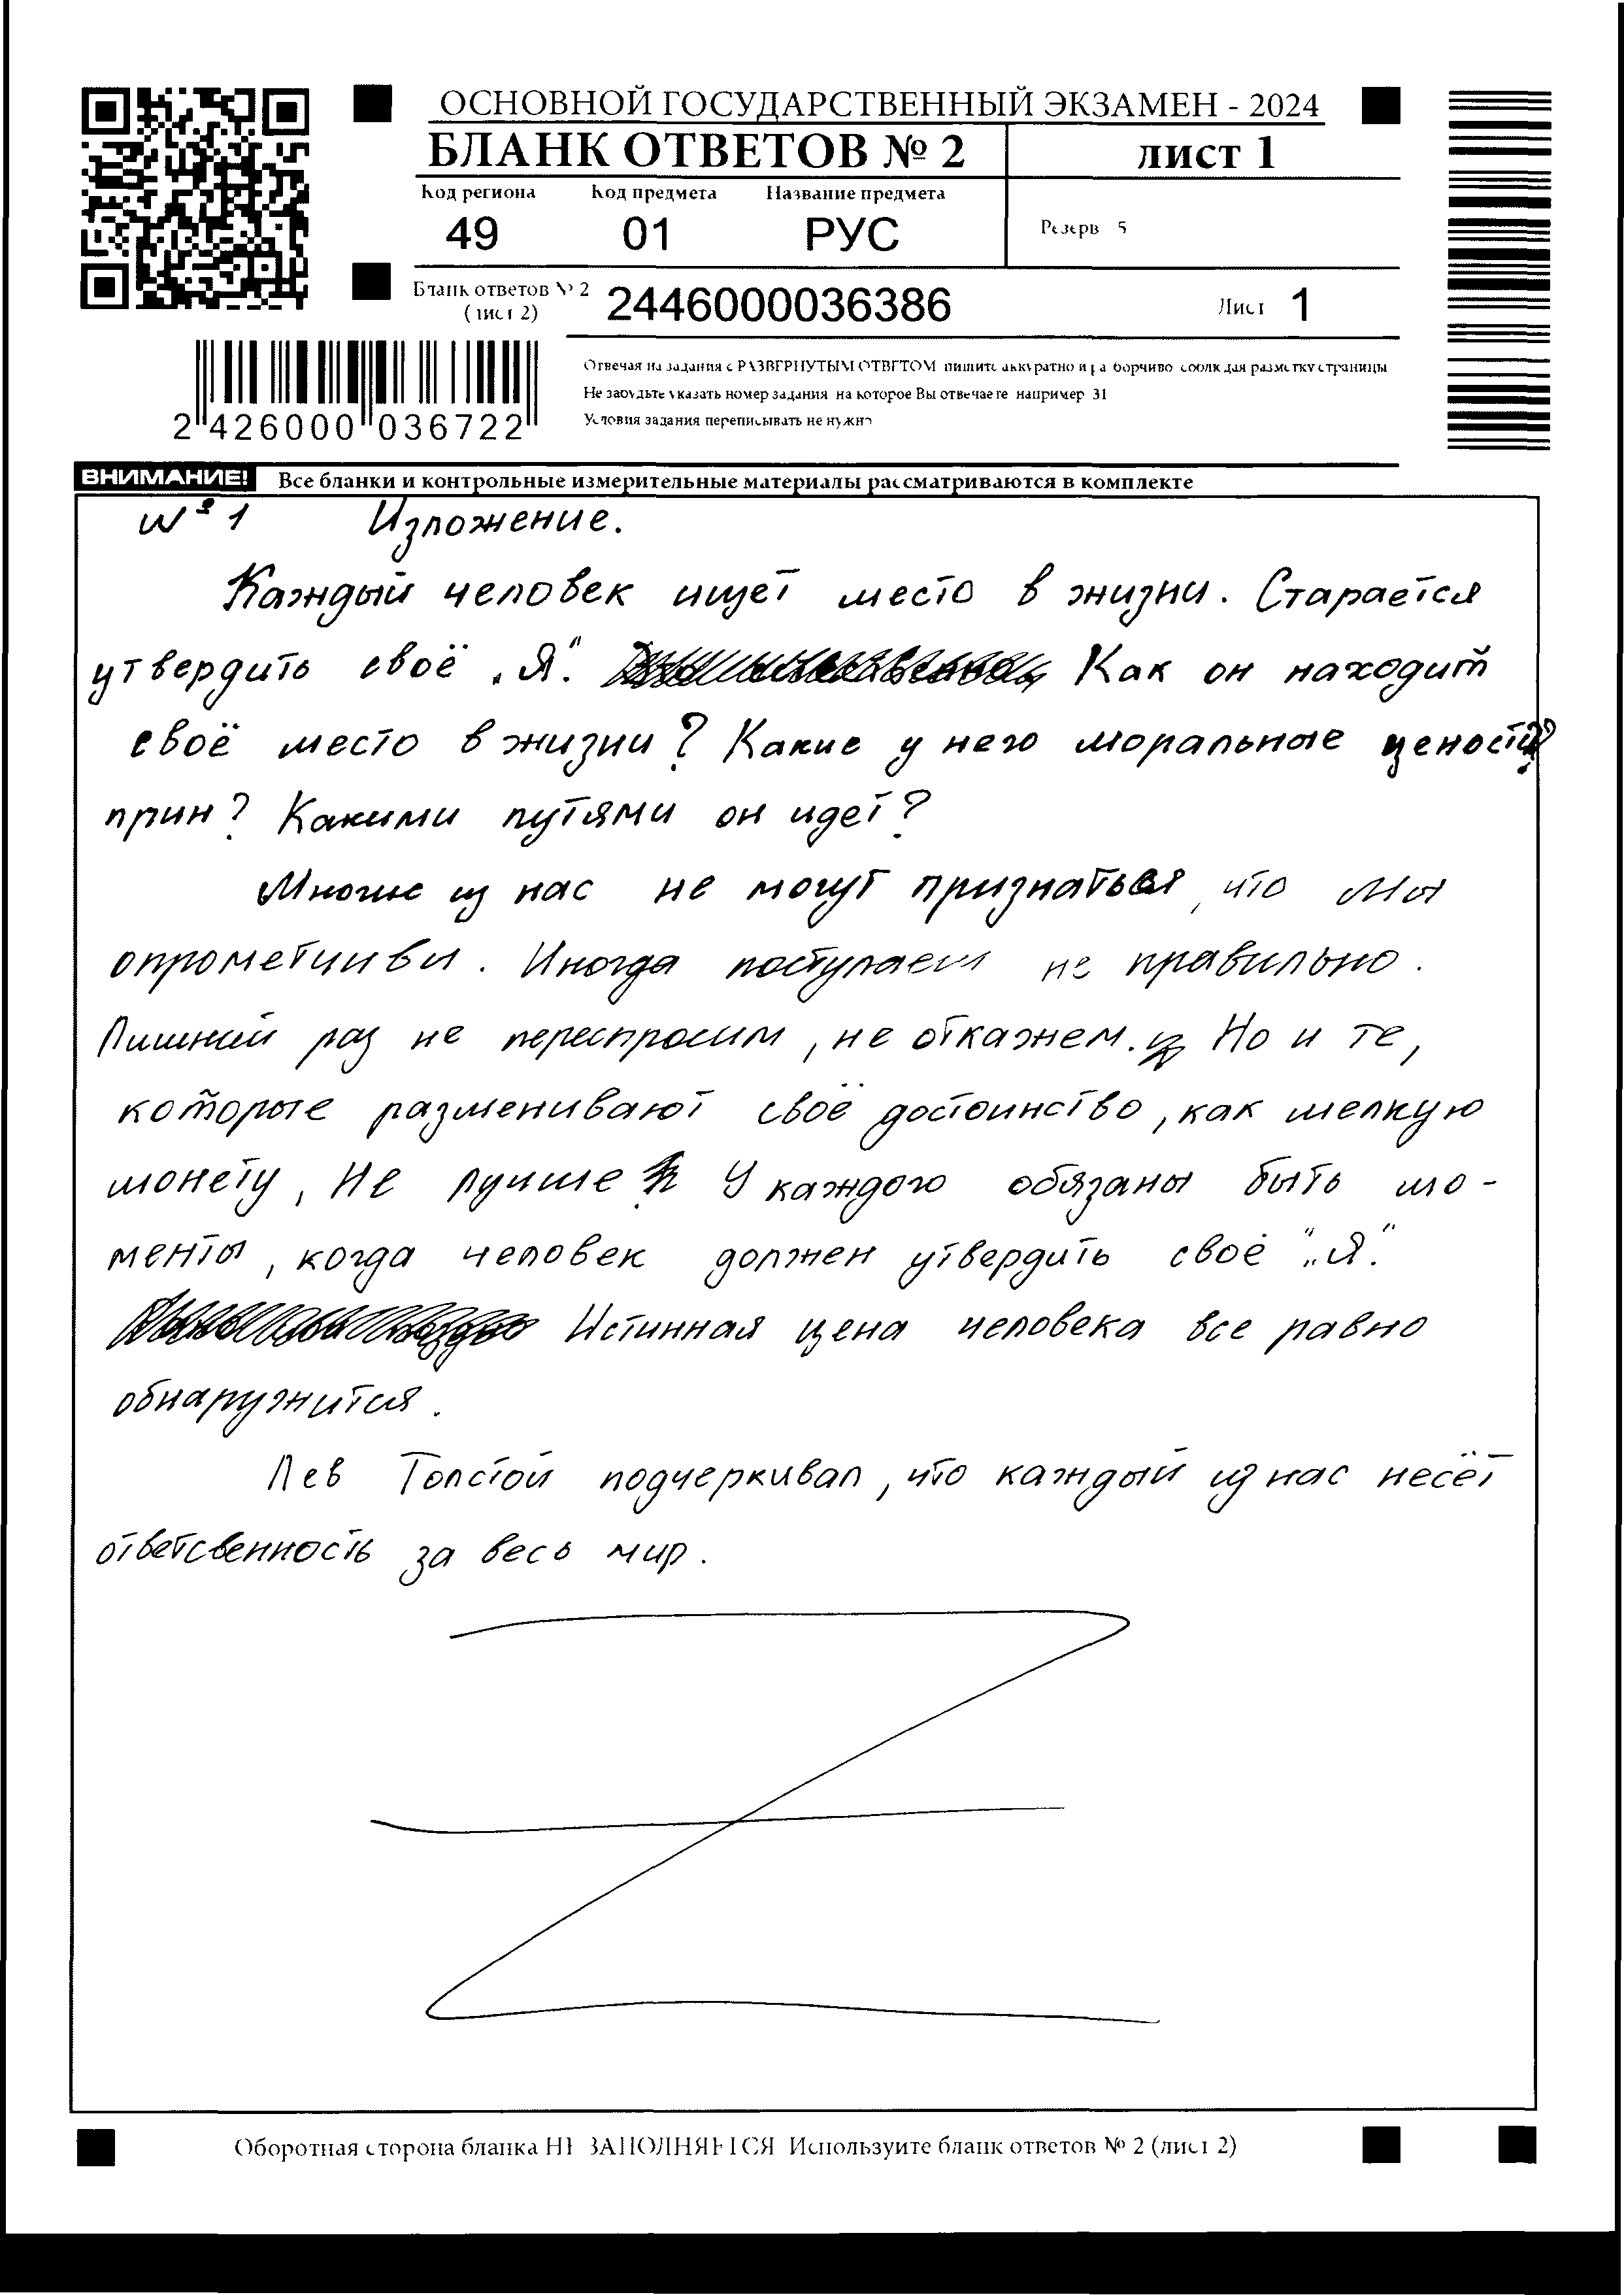 ОСНОВНОЙ ГОСУДАРСТВЕННЫЙ ЭКЗАМЕН - 2024
БЛАНК ОТВЕТОВ № 2
лист 1
Код региона Код предмета Название предмета
49 01 РУС
Резерв 5
Бланк ответов № 2
(лист 2)
2446000036386
Лист 1
2 426000 036722
Отвечая на задания с РАЗВЕРНУТЫМ ОТВЕТОМ пишите аккуратно и разборчиво соблюдая разметку страницы
Не забудьте указать номер задания на которое Вы отвечаете например 31
Условия задания переписывать не нужно
ВНИМАНИЕ! Все бланки и контрольные измерительные материалы рассматриваются в комплекте
№ 1 Изложение.
Каждый человек ищет место в жизни. Старается
утвердить своё „Я". Как он находит
своё место в жизни? Какие у него моральные
прин? Какими путями он идет?
Многие из нас не могут признаться, что мы
опрометчивы. Иногда поступаем не правильно.
Лишний раз не переспросим, не откажем. Но и те,
которые разменивают своё достоинство, как мелкую
монету, Не лучше У каждого обязаны быть мо-
менты, когда человек должен утвердить своё „Я".
Истинная цена человека все равно
обнаружится.
Лев Толстой подчеркивал, что каждый из нас несёт
ответсвенность за весь мир.
Оборотная сторона бланка НЕ ЗАПОЛНЯЕТСЯ Используйте бланк ответов № 2 (лист 2)